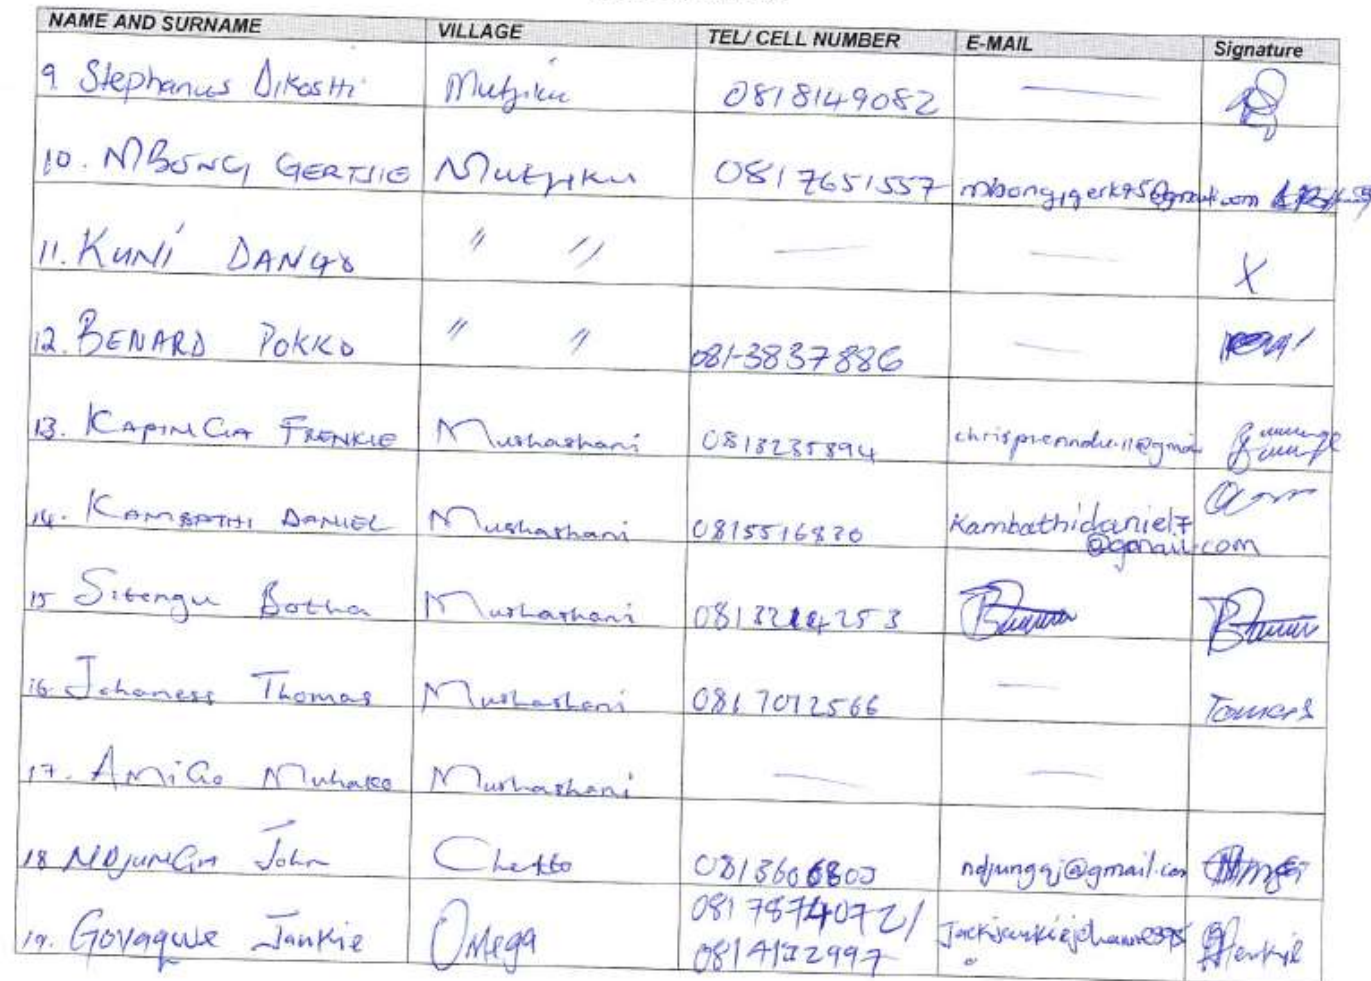 NAME AND SURNAME VILLAGE TEL/ CELL NUMBER E-MAIL Signature
9. Stephanus Dikoshi Mutjiku 0818149082 —
10. MBUNGI GERTJIE Mutjiku 0817651557
11. KUNI DANGO " " — — X
12. BENARD POKKO " " 081-3837886 —
13. KAPINGA FRENKIE Mushashani 0813235894
14. KAMBATHI DANIEL Mushashani 0815516820 Kambathidaniel7
@gmail.com
15 Sitengu Botha Mushashani
16. Johaness Thomas Mushashani 0817012566 — Tomas
17. AMiGo Muhako Mushashani — —
18 NDJUNGA John Chetto ndjungaj@gmail.com
19. Govaqwe Jankie Omega 0817874072/
0814122997